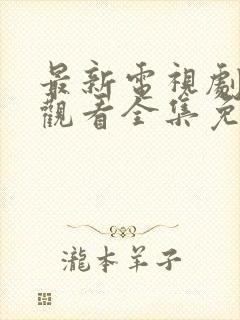 最新電視劇
觀看全集免
瀧本羊子